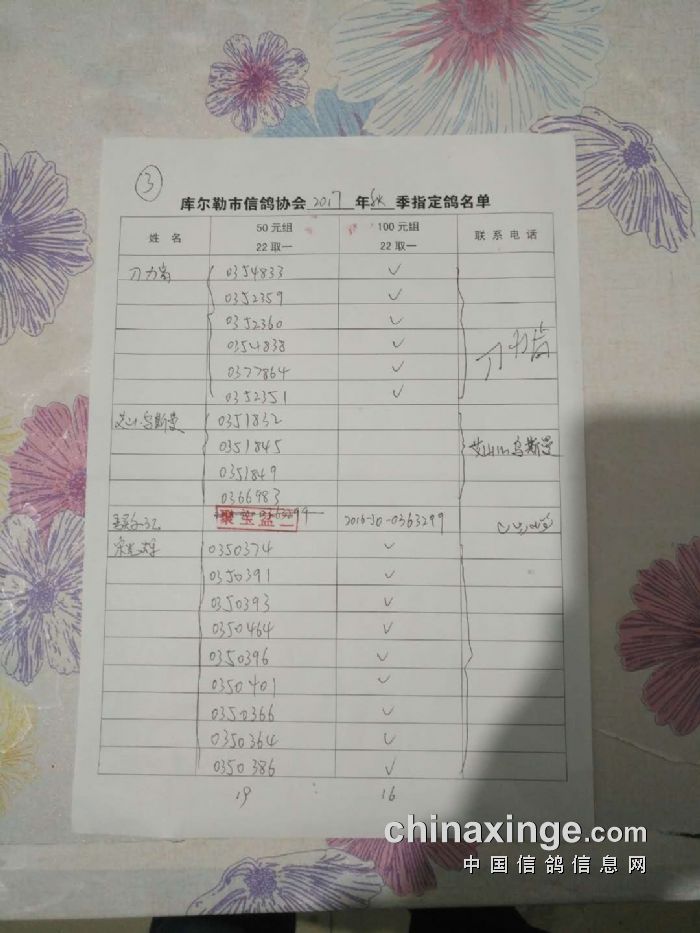 ③
库尔勒市信鸽协会 2017 年 秋 季指定鸽名单
姓 名 50元组 22取一 100元组 22取一 联系电话
刀力岗 0354833 ✓
0352359 ✓
0352360 ✓
0354838 ✓
0377864 ✓ 刀力岗
0352351 ✓
艾山·乌斯曼 0351832
0351845 艾山 乌斯曼
0351849
0366983
聚宝盆 2016-30-0363299
0350374 ✓
0350391 ✓
0350393 ✓
0350464 ✓
0350396 ✓
0350401 ✓
0350366 ✓
0350364 ✓
0350386 ✓
19 16
chinaxinge.com
中国信鸽信息网